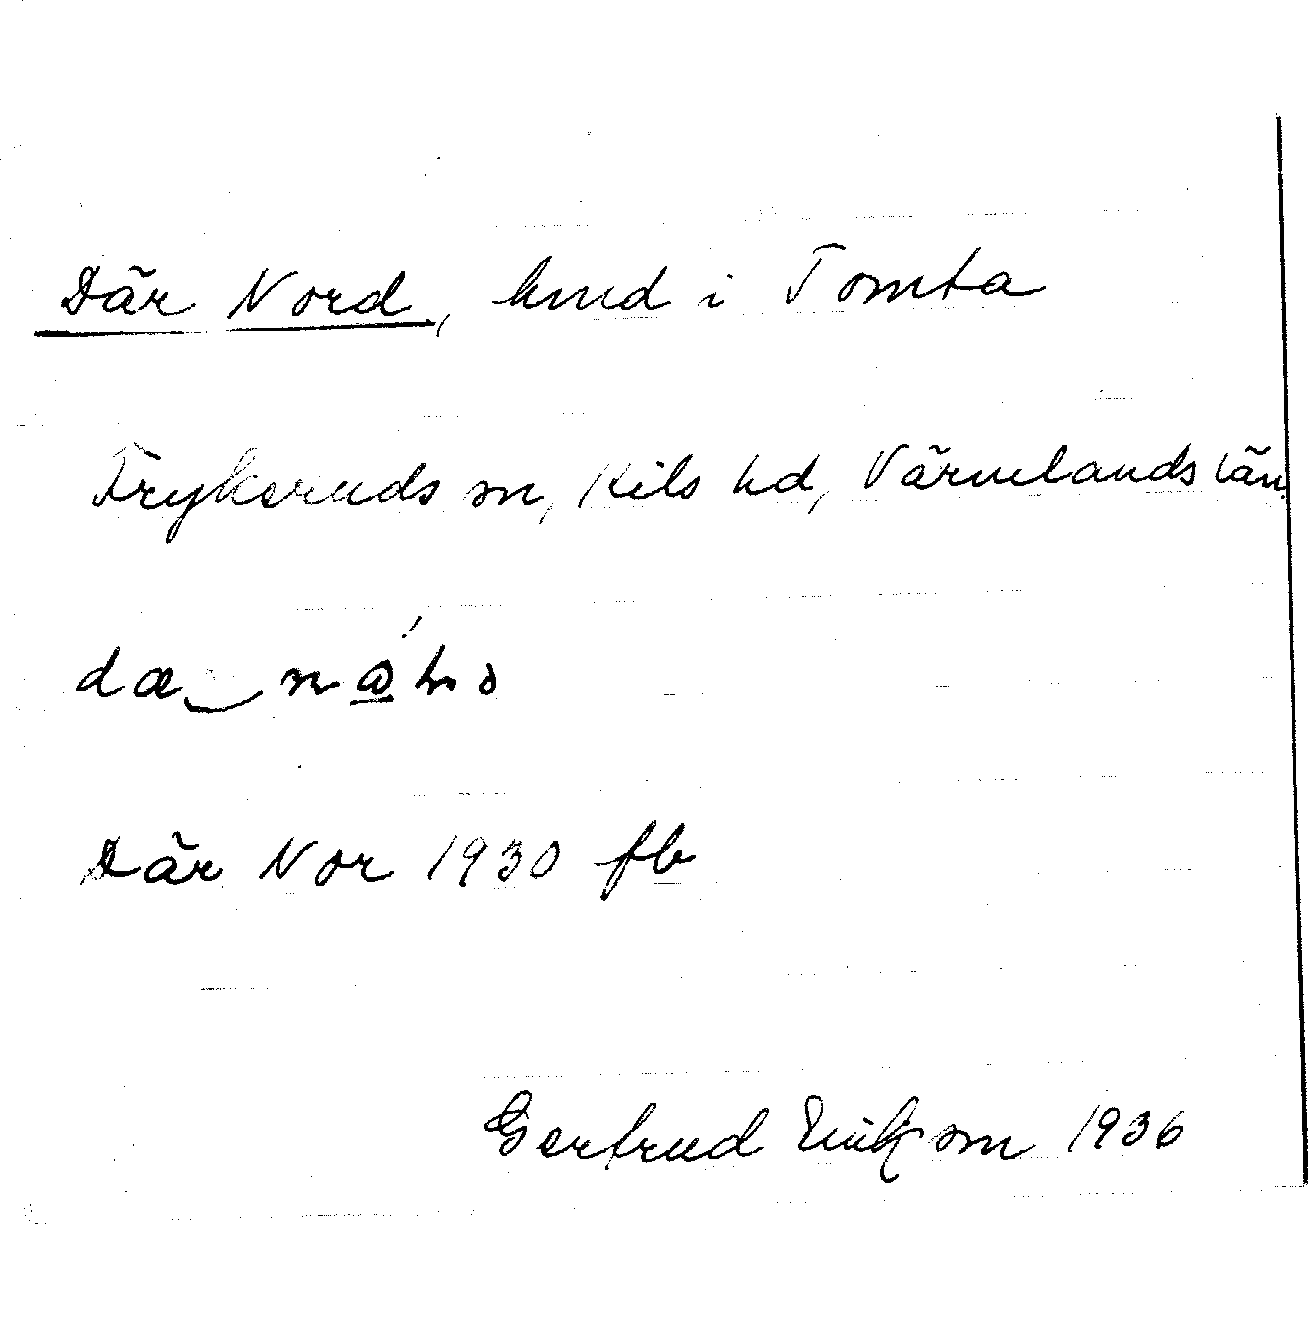 Där Nord, hmd i Tomta
Frykeruds sn, Kils hd, Värmlands län.
Där Nor 1930 fb
Gertrud Erikson 1936